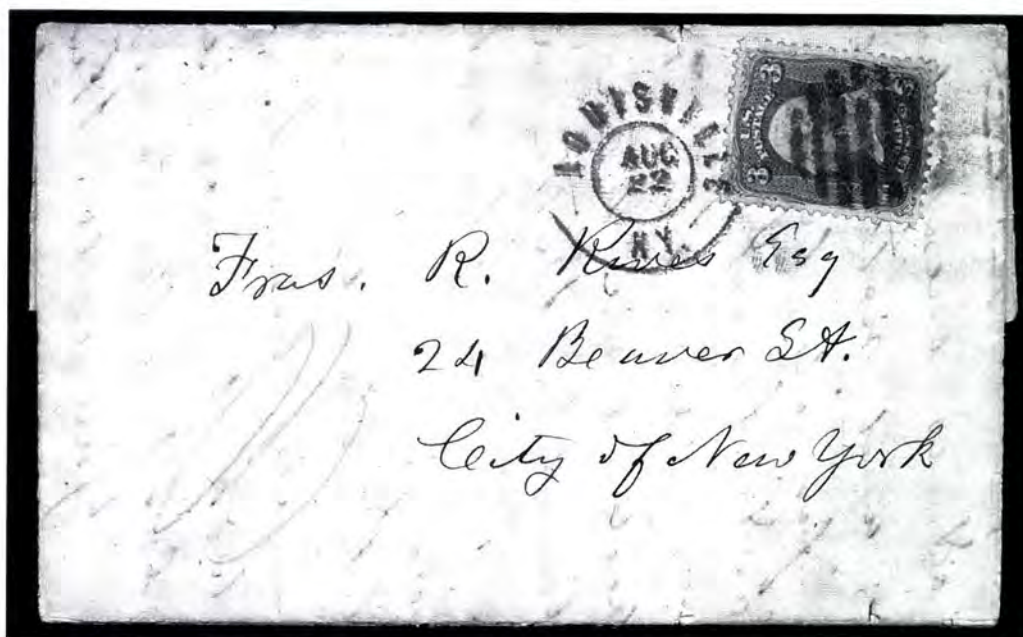 LOUISVILLE
AUG
22
KY.
3 3
U.S.
POSTAGE
Fras. R. Rives Esq
24 Beaver St.
City of New York